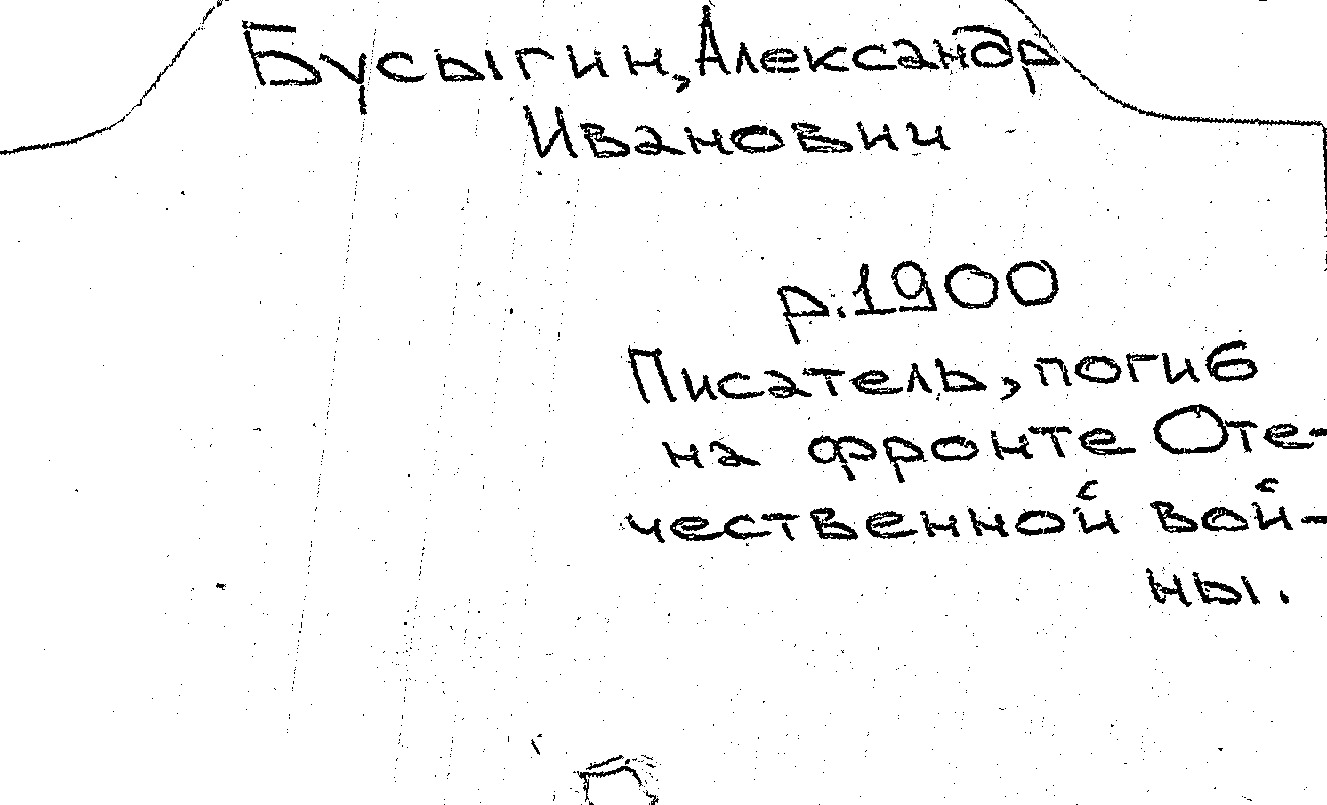 Бусыгин, Александр
Иванович
р. 1900
Писатель, погиб
на фронте Оте-
чественной вой-
ны.